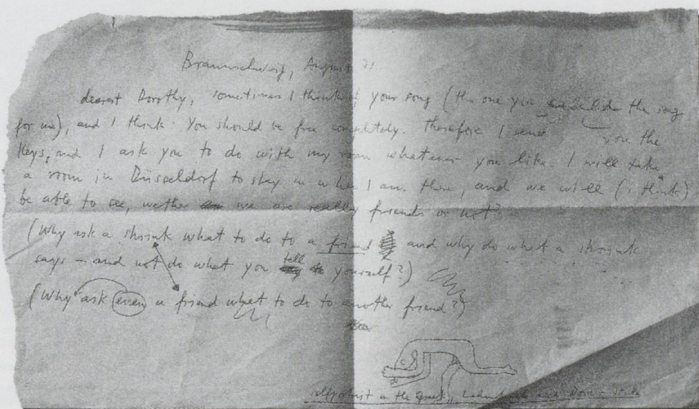 Braunschweig, August
dearest Dorothy, sometimes I think of your song (the one you the song
for me), and I think: You should be free completely. Therefore I send you the
keys, and I ask you to do with my room whatever you like. I will take
a room in Düsseldorf to stay in when I am there, and we will (i think)
be able to see, wether we are really friends or not?
(Why ask a shrink what to do to a friend and why do what a shrink
says and not do what you tell yourself?)
(Why ask even a friend what to do to another friend?)
selfportrait in the